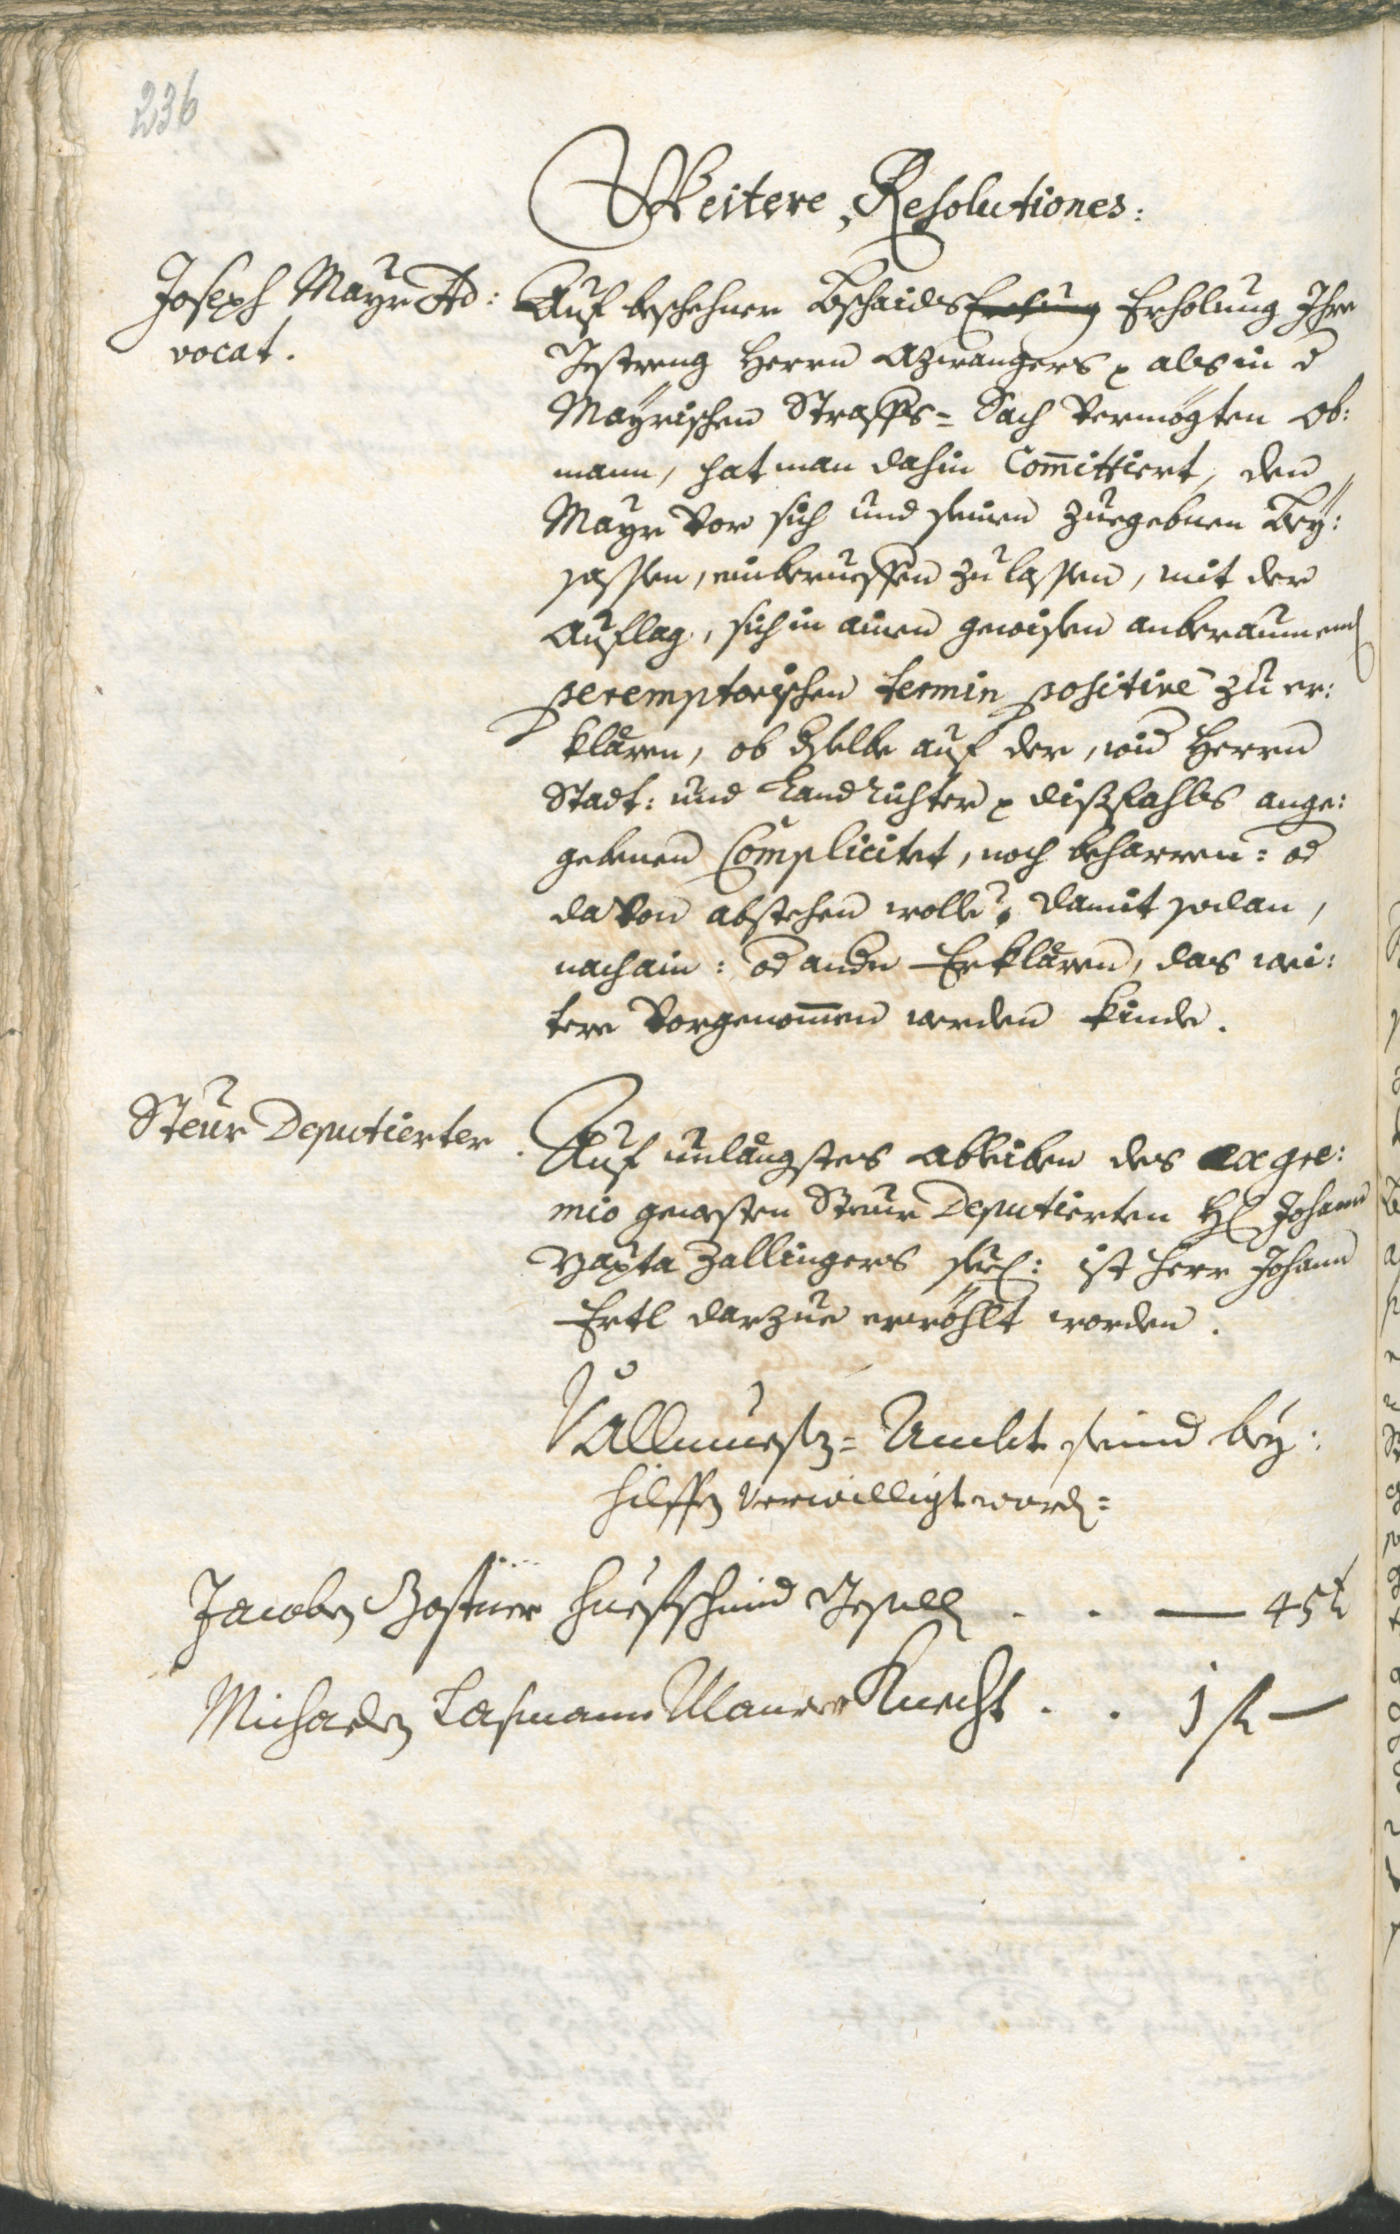 236
Weitere Resolutiones:
Joseph Mayr Ad:
vocat.
Auf beschehner Bschaids Erholung Ihre
Gestreng Herrn Azwangers als in d
Mayrischen Straffs= Sach Vermögten Ob:
mann, hat man dahin Com̄ittiert, den
Mayr Vor sich und seinen zuegebnen Bey:
sassen, einberueffen zu lassen, mit der
Auflag, sich in ainen gewisen anberaumend
peremptorischen termin positive zu er:
klären, ob dselbe auf der, wid Herrn
Stadt: und Landrichter dißfahls ange:
gebenen Complicitet, noch beharren: od
da Von abstehen wolle? damit sodan,
nach ain: od andn Erklären, das wei:
tere Vorgenom̄en werden kinde.
Steur Deputierter.
Auf unlängstes ableiben des ex gre:
mio gewesten Steur Deputierten H: Johann
Bapta Zallingers seel: ist Herr Johann
Ertl darzue erwöhlt worden.
Vallmuesz= Ambt seind bey:
hilffen verwilligt word:
Jacoben Gostner Huefschmid Gesell . . — 45 k
Michaelen Lasmann Maurer Knecht . . 1 fl —